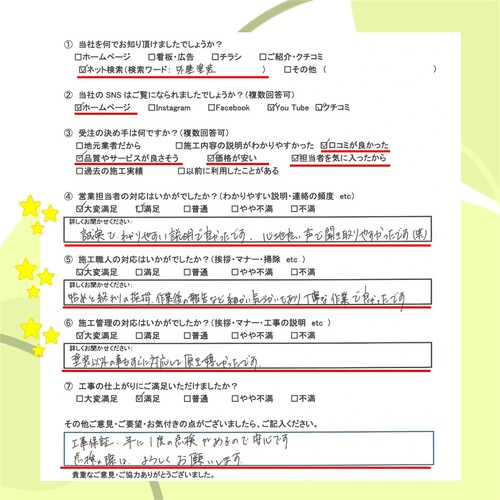 ① 当社を何でお知り頂けましたでしょうか？
□ホームページ □看板・広告 □チラシ □ご紹介・クチコミ
☑ネット検索（検索ワード： 外壁塗装 ） □その他（ ）
② 当社の SNS はご覧になられましたでしょうか？（複数回答可）
☑ホームページ □Instagram □Facebook ☑You Tube ☑クチコミ
③ 受注の決め手は何ですか？（複数回答可）
□地元業者だから □施工内容の説明がわかりやすかった ☑口コミが良かった
☑品質やサービスが良さそう ☑価格が安い ☑担当者を気に入ったから
□過去の施工実績 □以前にご利用したことがある
④ 営業担当者の対応はいかがでしたか？（わかりやすい説明・連絡の頻度 etc）
☑大変満足 ☑満足 □普通 □やや不満 □不満
詳しくお聞かせください：
誠実でわかりやすい説明で良かったです。心地良い声で聞き取りやすかったです（笑）
⑤ 施工職人の対応はいかがでしたか？（挨拶・マナー・掃除 etc ）
☑大変満足 □満足 □普通 □やや不満 □不満
詳しくお聞かせください：
始めと終わりの挨拶、作業後の報告など細かい気づかいもあり丁寧な作業で良かったです
⑥ 施工管理の対応はいかがでしたか？（挨拶・マナー・工事の説明 etc ）
☑大変満足 □満足 □普通 □やや不満 □不満
詳しくお聞かせください：
塗装以外の事もすぐに対応して頂き嬉しかったです。
⑦ 工事の仕上がりにご満足いただけましたか？
□大変満足 ☑満足 □普通 □やや不満 □不満
その他ご意見・ご要望・お気付きの点がございましたら、ご記入ください。
工事保証、年に1度の点検があるので安心です
点検の際は、よろしくお願いします。
貴重なご意見・ご協力ありがとうございました。